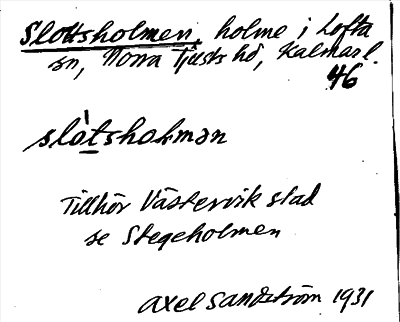 Slottsholmen, holme i Lofta
sn, Norra Tjusts hd, Kalmar l.
46
slòtshołmən
Tillhör Västervik stad
se Stegeholmen
Axel Sandström 1931